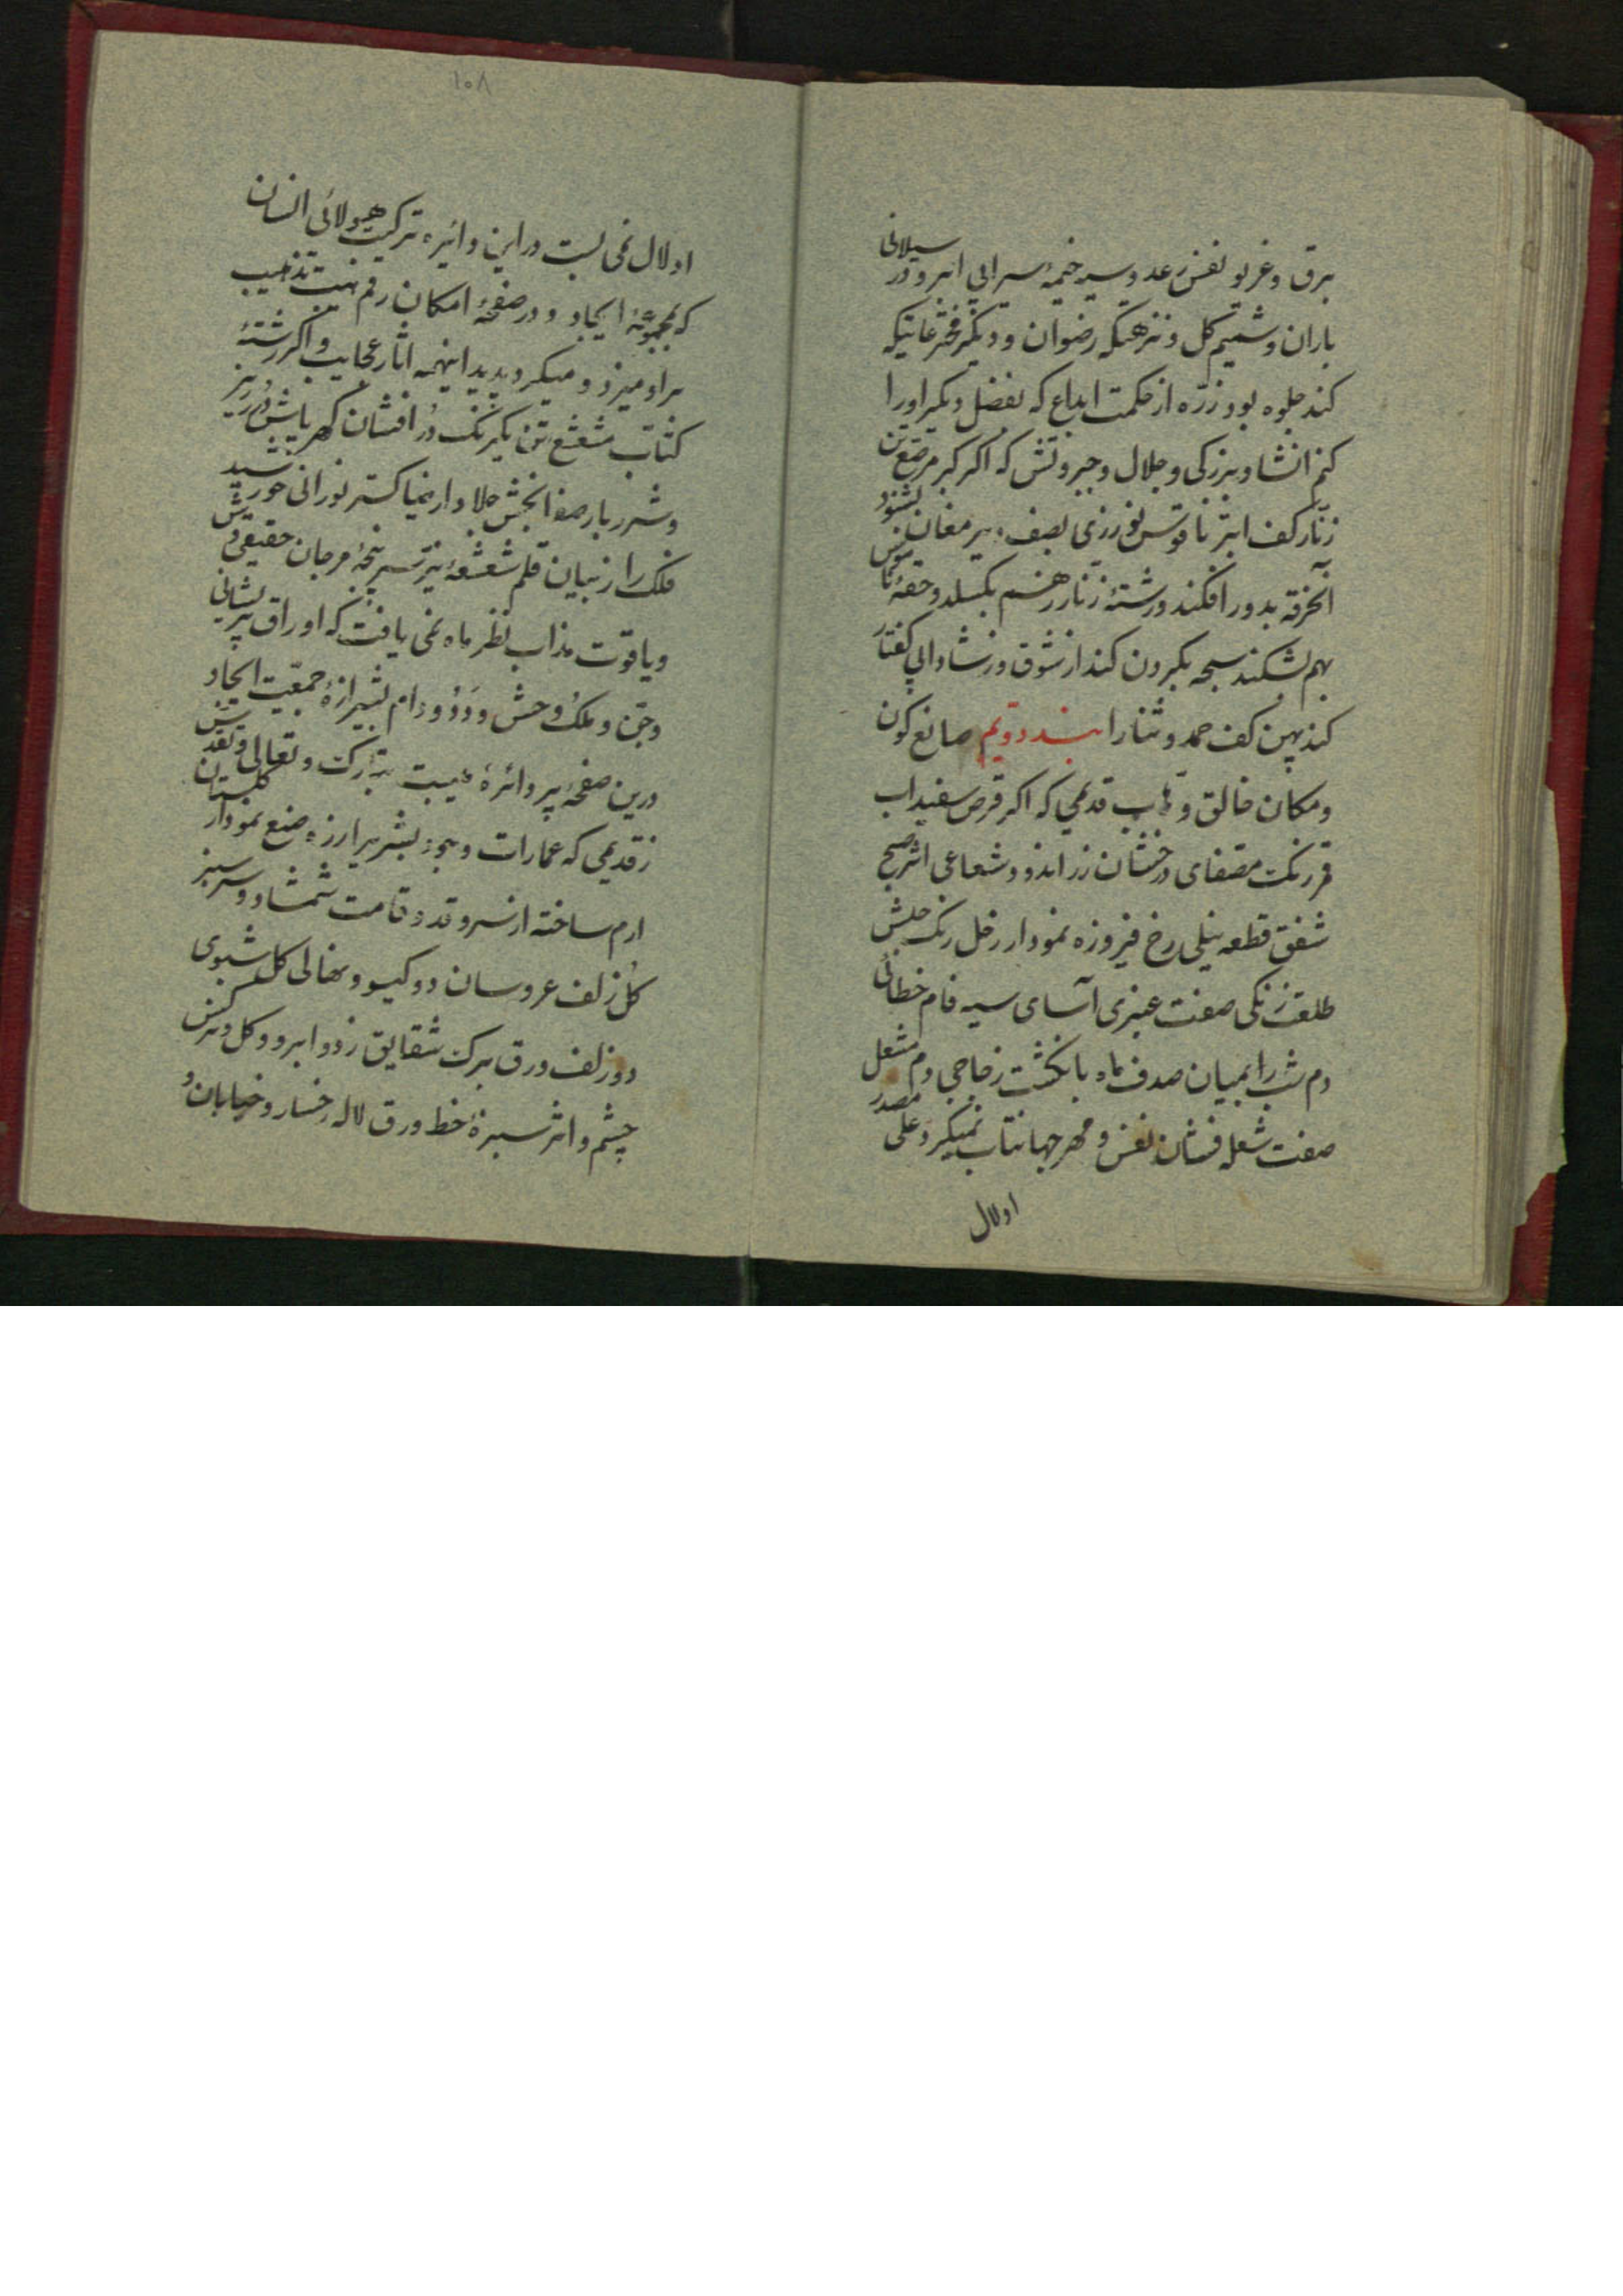 برق و غریو نفس رعد و سیه خیمهٔ سرابی ابر و در سیلانی
باران و شمیم گل و نزهتگه رضوان و دیگر
کند جلوه بود ذرّه از حکمت ابداع که بفضل دیگر او را
کنم انشا و بزرگی و جلال و جبروتش که اگر گبر مرصع تن
زنّار کف ناقوس بصف پیر مغان بشنود
آنخرقه بدور افکند و رشتهٔ زنّار زهم بگسلد و حقهٔ
بهم بشکند سبحه بگردن کند از شوق و ز شادابی گفتار
کند پهن کف حمد و ثنا را بند دویّم صانع کون
و مکان خالق و وهّاب قدیمی که اگر قرص سفیداب
قمر رنگ مصفای درخشان زر اندود شعاعی اثر صبح
شفق قطعه نیلی رخ فیروزه نمودار زحل رنگ حبش
طلعت زنگی صفت عنبری آسای سیه فام خطائی
دم شب را بمیان صدف ماه بانگشت زجاجی دم مشعل
صفت شعله فشان نفس و مهر جهانتاب نمیکرد علی مصدر
اولال
۱۰۸
اولال نمی بست در این دائره ترکیب هیولائی انسان
که بمجموعهٔ ایجاد و در صفحهٔ امکان رقم تذهیب
براو میزد و میکرد پدید اینهمه آثار عجایب و اگر رشتهٔ
مشعشع تن یکرنگ دُر افشان گهر پاش دُرر ریز
و شرر بار صفا بخش جلا دار ضیا گستر نورانی خورشید
فلک را ز بیان قلم شعشعهٔ نیّر سر پنجهٔ مرجان حقیقی
و یاقوت مذاب نظر ماه نمی یافت که اوراق پریشانی
و جنّ و ملک و وحش و دَد و دام بشیرازهٔ جمعیّت ایجاد
درین صفحهٔ پر دائرهٔ تبارک و تعالی و تقدّس
ز قدیمی که عمارات وجود بشر صنع نمودار گلستان
ارم ساخته از سرو قد و قامت شمشاد و سر سبز
گل زلف عروسان دو گیسو و نهالی گل شبوی
دو زلف و ورق برگ شقایق ز دو ابرو و گل نرگس
چشم و اثر سبزهٔ خط و ورق لاله رخسار و خیابان